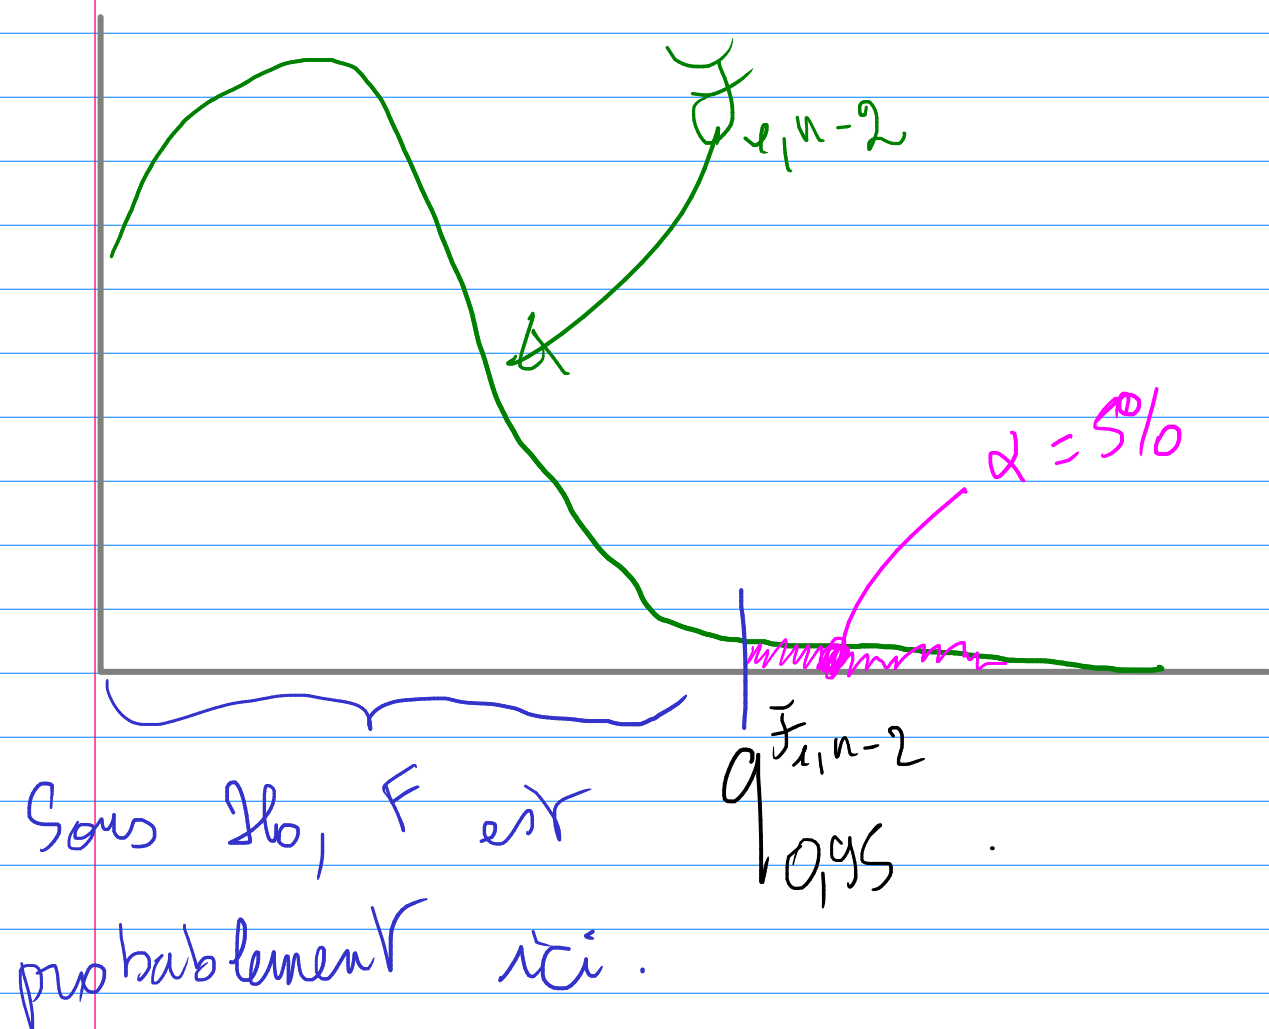 ℱ₁,n-2
α = 5%
q^ℱ₁,n-2
0,95
Sous H₀, F est
probablement ici.